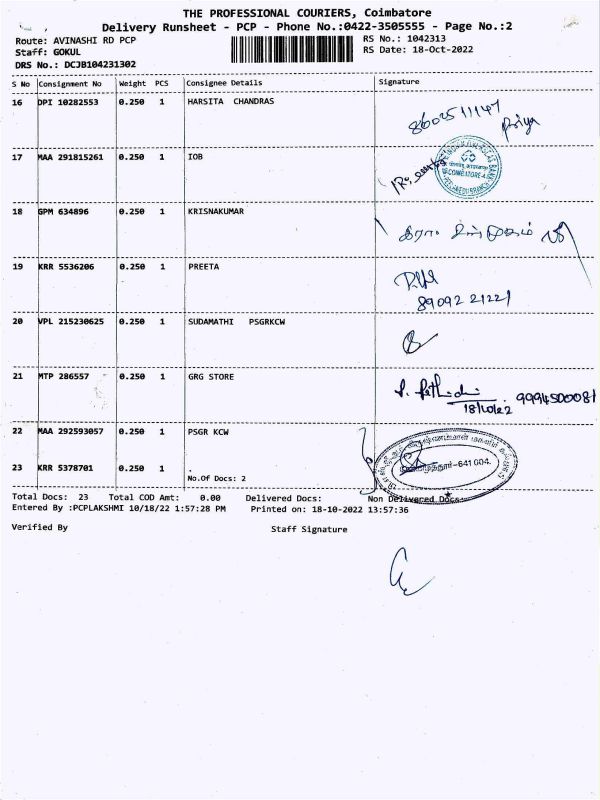 THE PROFESSIONAL COURIERS, Coimbatore
Delivery Runsheet - PCP - Phone No.:0422-3505555 - Page No.:2
Route: AVINASHI RD PCP
RS No.: 1042313
Staff: GOKUL
RS Date: 18-Oct-2022
DRS No.: DCJB104231302
S No Consignment No Weight PCS Consignee Details Signature
16 DPI 10282553 0.250 1 HARSITA CHANDRAS
8602511147 Priya
17 MAA 291815261 0.250 1 IOB
INDIAN OVERSEAS BANK
COIMBATORE-4
18 GPM 634896 0.250 1 KRISNAKUMAR
19 KRR 5536206 0.250 1 PREETA
89092 21221
20 VPL 215230625 0.250 1 SUDAMATHI PSGRKCW
21 MTP 286557 0.250 1 GRG STORE
9994500081
18/10/22
22 MAA 292593057 0.250 1 PSGR KCW
23 KRR 5378701 0.250 1 .
-641 004.
No.Of Docs: 2
Total Docs: 23 Total COD Amt: 0.00 Delivered Docs: Non Delivered Docs:
Entered By :PCPLAKSHMI 10/18/22 1:57:28 PM Printed on: 18-10-2022 13:57:36
Verified By Staff Signature